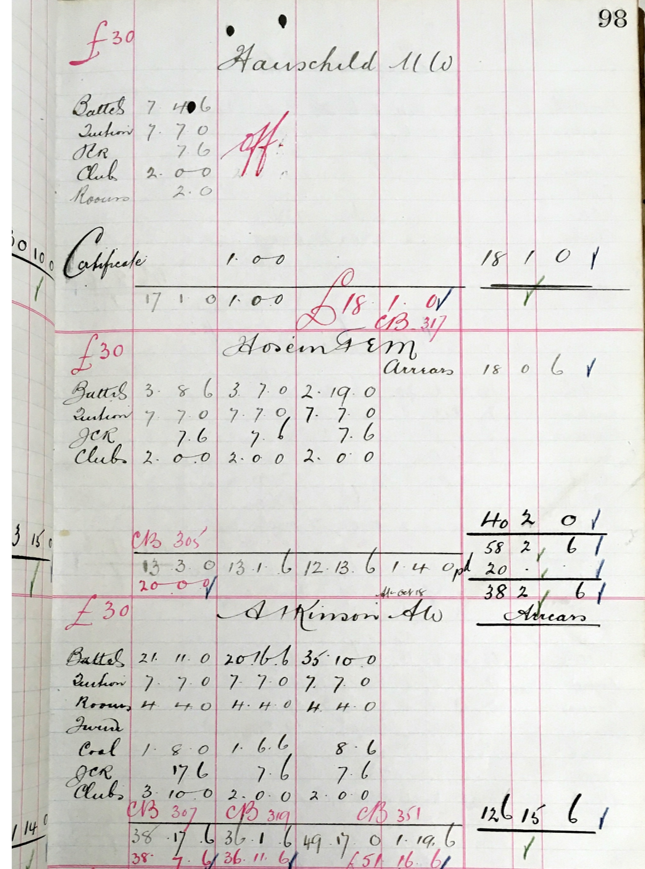 98
£30 Hauschild M W
Battels 7 4 6
Tuition 7. 7 0
JCR 7 6 off.
Clubs 2. 0 0
Rooms 2. 0
Certificate 1. 0 0 18 1 0
17 1 0 1. 0 0 £18. 1. 0
CB 317
£30 Hosein F E M
Arrears 18 0 6
Battels 3. 8 6 3. 7. 0 2. 19. 0
Tuition 7 7. 0 7. 7. 0 7. 7. 0
JCR 7. 6 7. 6 7. 6
Clubs 2. 0. 0 2. 0 0 2. 0 0
40 2 0
CB 305 58 2 6
13 3. 0 13. 1. 6 12. 13. 6 1. 4 0 pd 20 . .
20 0 0 38 2 6
£30 Atkinson A W Arrears
Battels 21. 11. 0 20 16. 6 35. 10. 0
Tuition 7. 7. 0 7. 7. 0 7. 7. 0
Rooms 4 4. 0 4. 4. 0 4. 4. 0
Coal 1. 8. 0 1. 6. 6 8. 6
JCR 17 6 7. 6 7. 6
Clubs 3. 10. 0 2. 0. 0 2. 0. 0
CB 307 CB 319 CB 351 126 15 6
38. 17. 6 36. 1. 6 49. 17. 0 1. 19. 6
38. 7. 6 36. 11. 6 £51. 16. 6